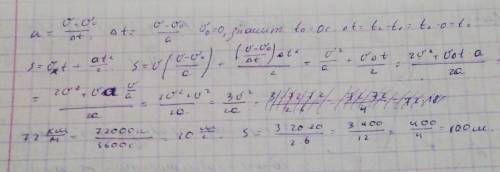 a = (υ+υ₀)/Δt, Δt = (υ-υ₀)/a υ₀=0, значит t₀=0с Δt = t₁-t₀ = t₁-0 = t₁
S = υ₀t + at²/2 S = υ((υ-υ₀)/a) + ((υ-υ₀)/Δt)Δt²/2 = υ²/a + υ₀t/2 = (2υ²+υ₀t·a)/2a
= (2υ²+υa υ/a)/2a = (2υ²+υ²)/2a = 3υ²/2a =
72 км/ч = 72000м/3600с = 20 м/с. S = 3·20·20/2·6 = 3·400/12 = 400/4 = 100м.